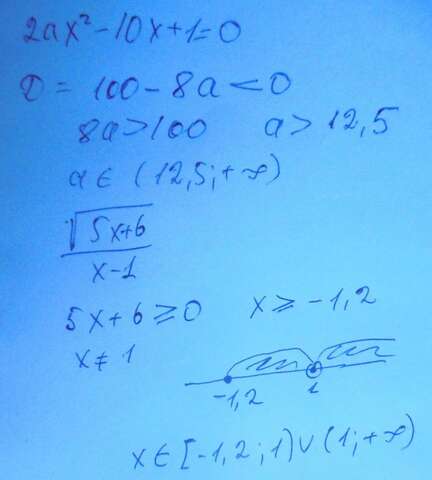 2ax² - 10x + 1 = 0
D = 100 - 8a < 0
8a > 100   a > 12,5
a ∈ (12,5; +∞)
√(5x+6) / (x-1)
5x + 6 ≥ 0   x ≥ -1,2
x ≠ 1
-1,2   1
x ∈ [-1,2; 1) ∪ (1; +∞)